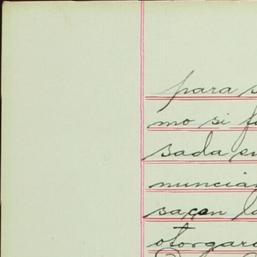 para s
mo si f
sada en
nuncian
sacan la
otorgara